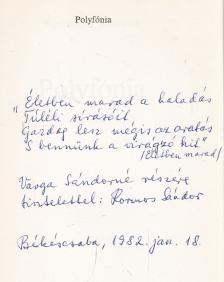 Polyfónia
"Életben marad a haladás
Túléli sírásóit
Gazdag lesz mégis az aratás
S bennünk a virágzó hit"
/Életben marad/
Varga Sándorné részére
tisztelettel: Kormos Sándor
Békéscsaba, 1982. jan. 18.